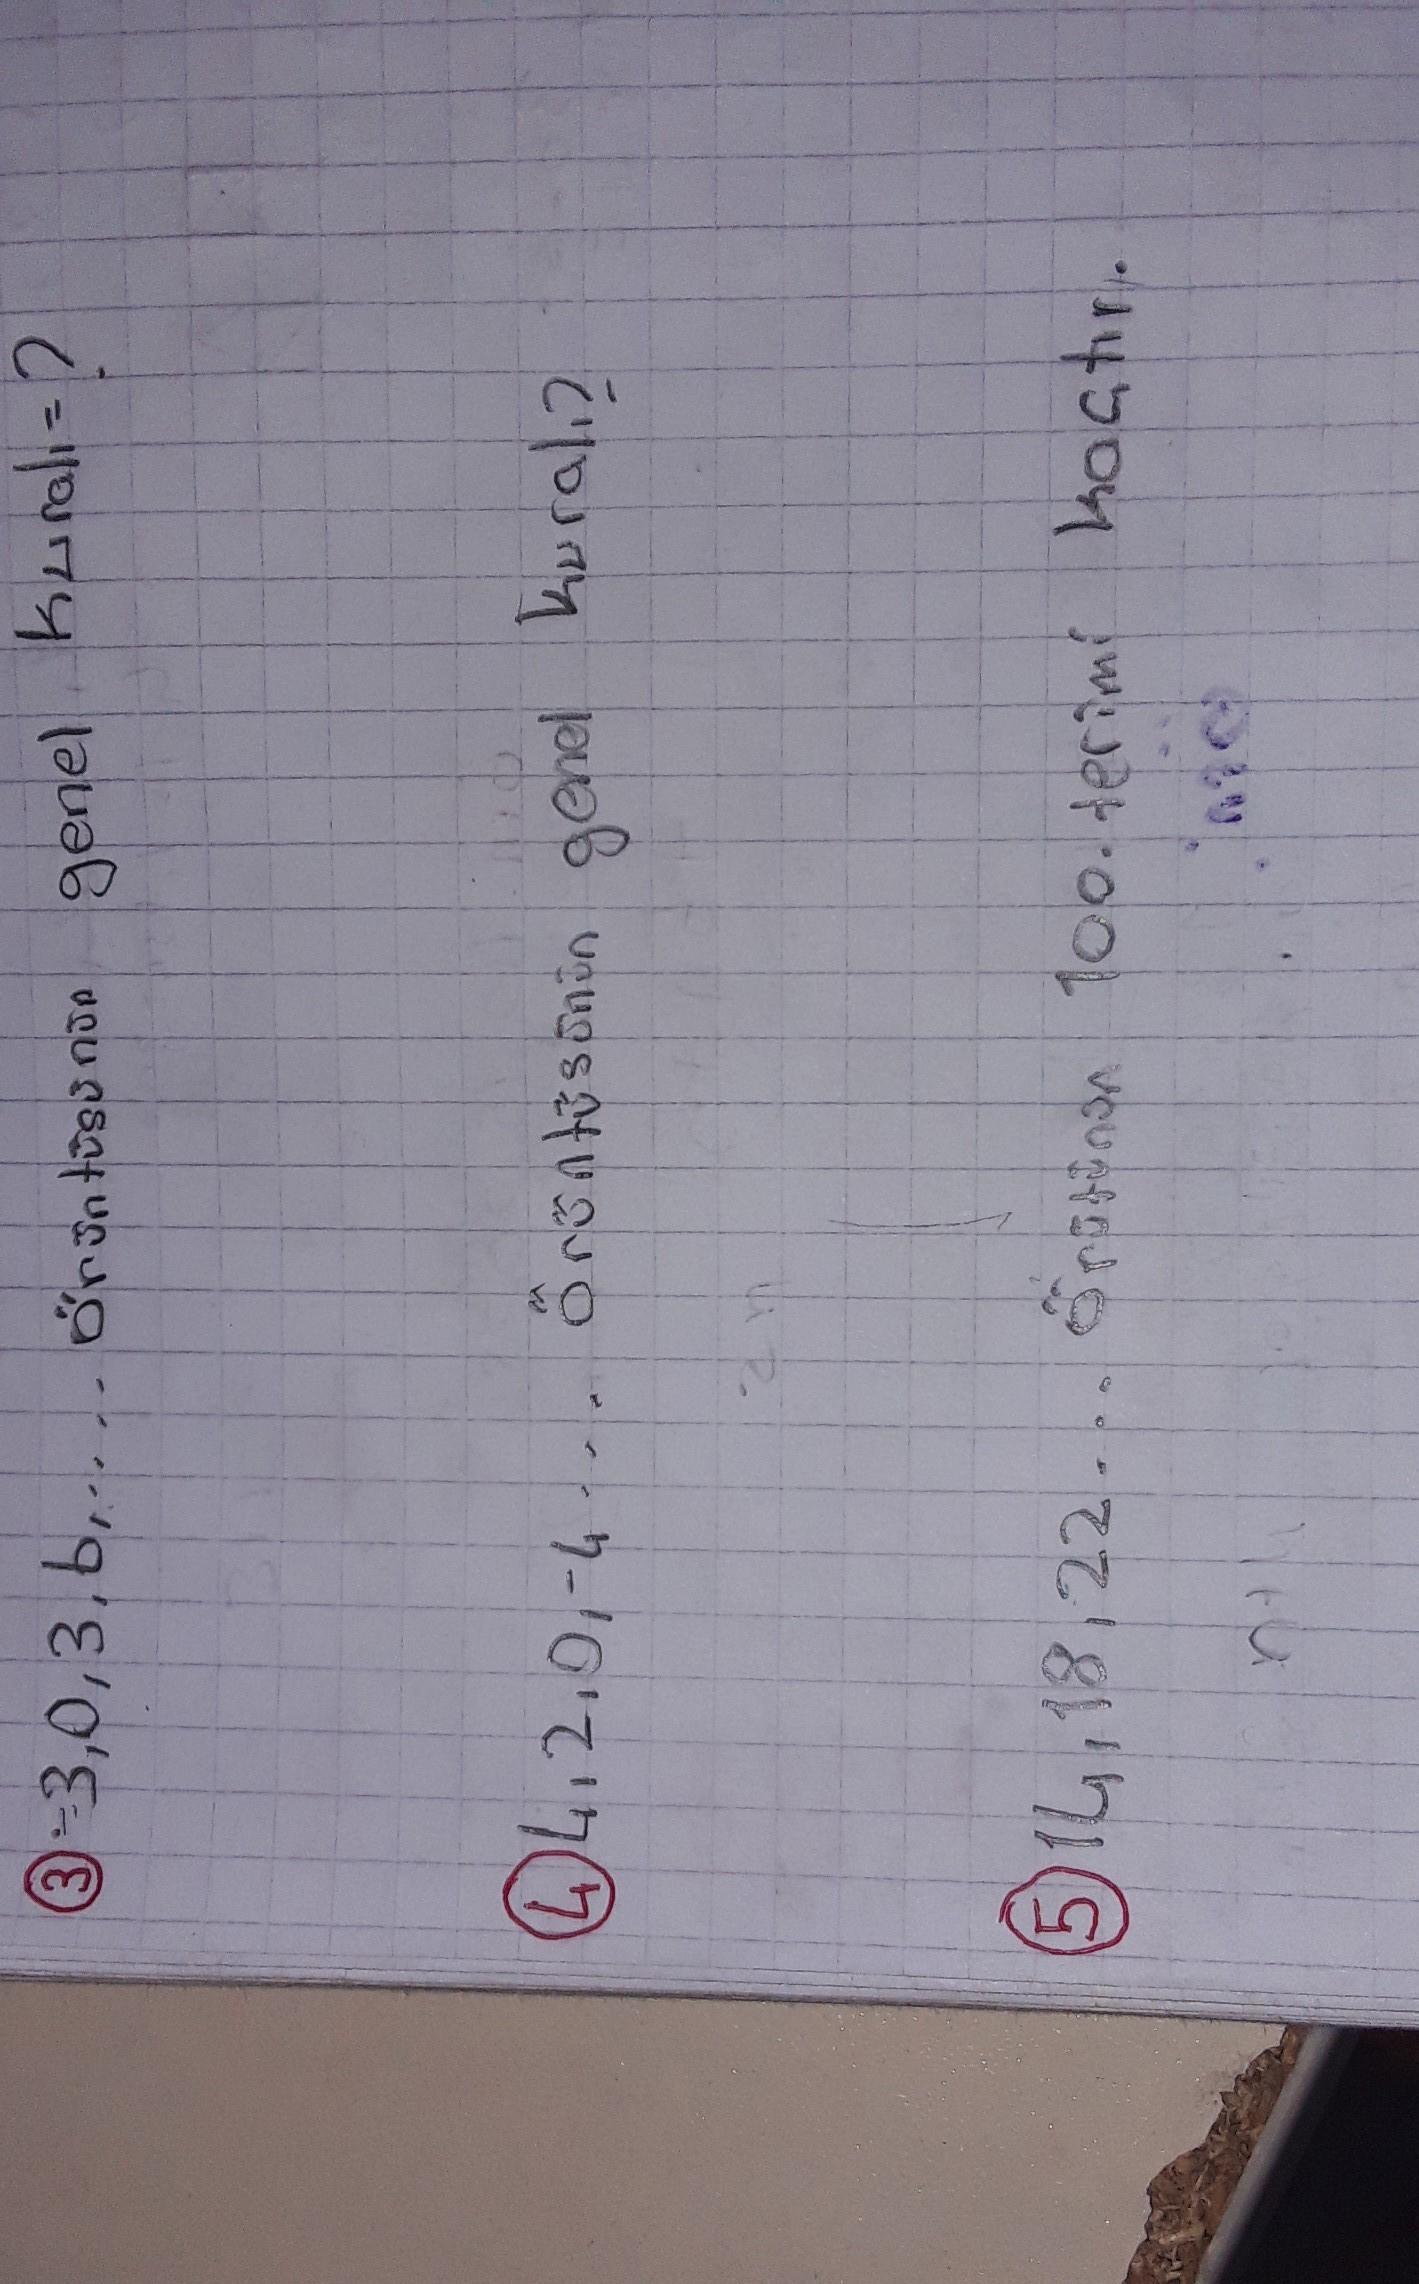 ③ -3,0,3,6,.... örüntüsünün genel kuralı=?
④ 4,2,0,-4.... Örüntüsünün genel kuralı?
⑤ 14,18,22.... Örütünün 100.terimi kaçtır.
n+4